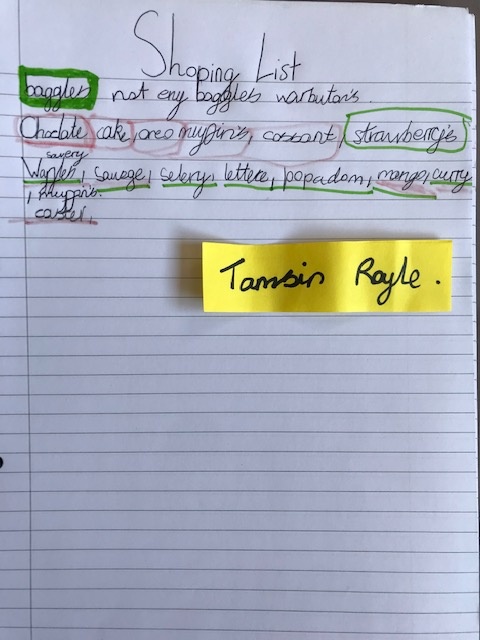 Shoping List
baggles not eny baggles warbutons.
Choclate cake, oreo muffin's, cossant, strawberry's
savery
Waffels, sausage, selery, lettere, popadom, mango, curry
, muffin's.
Tamsin Royle.